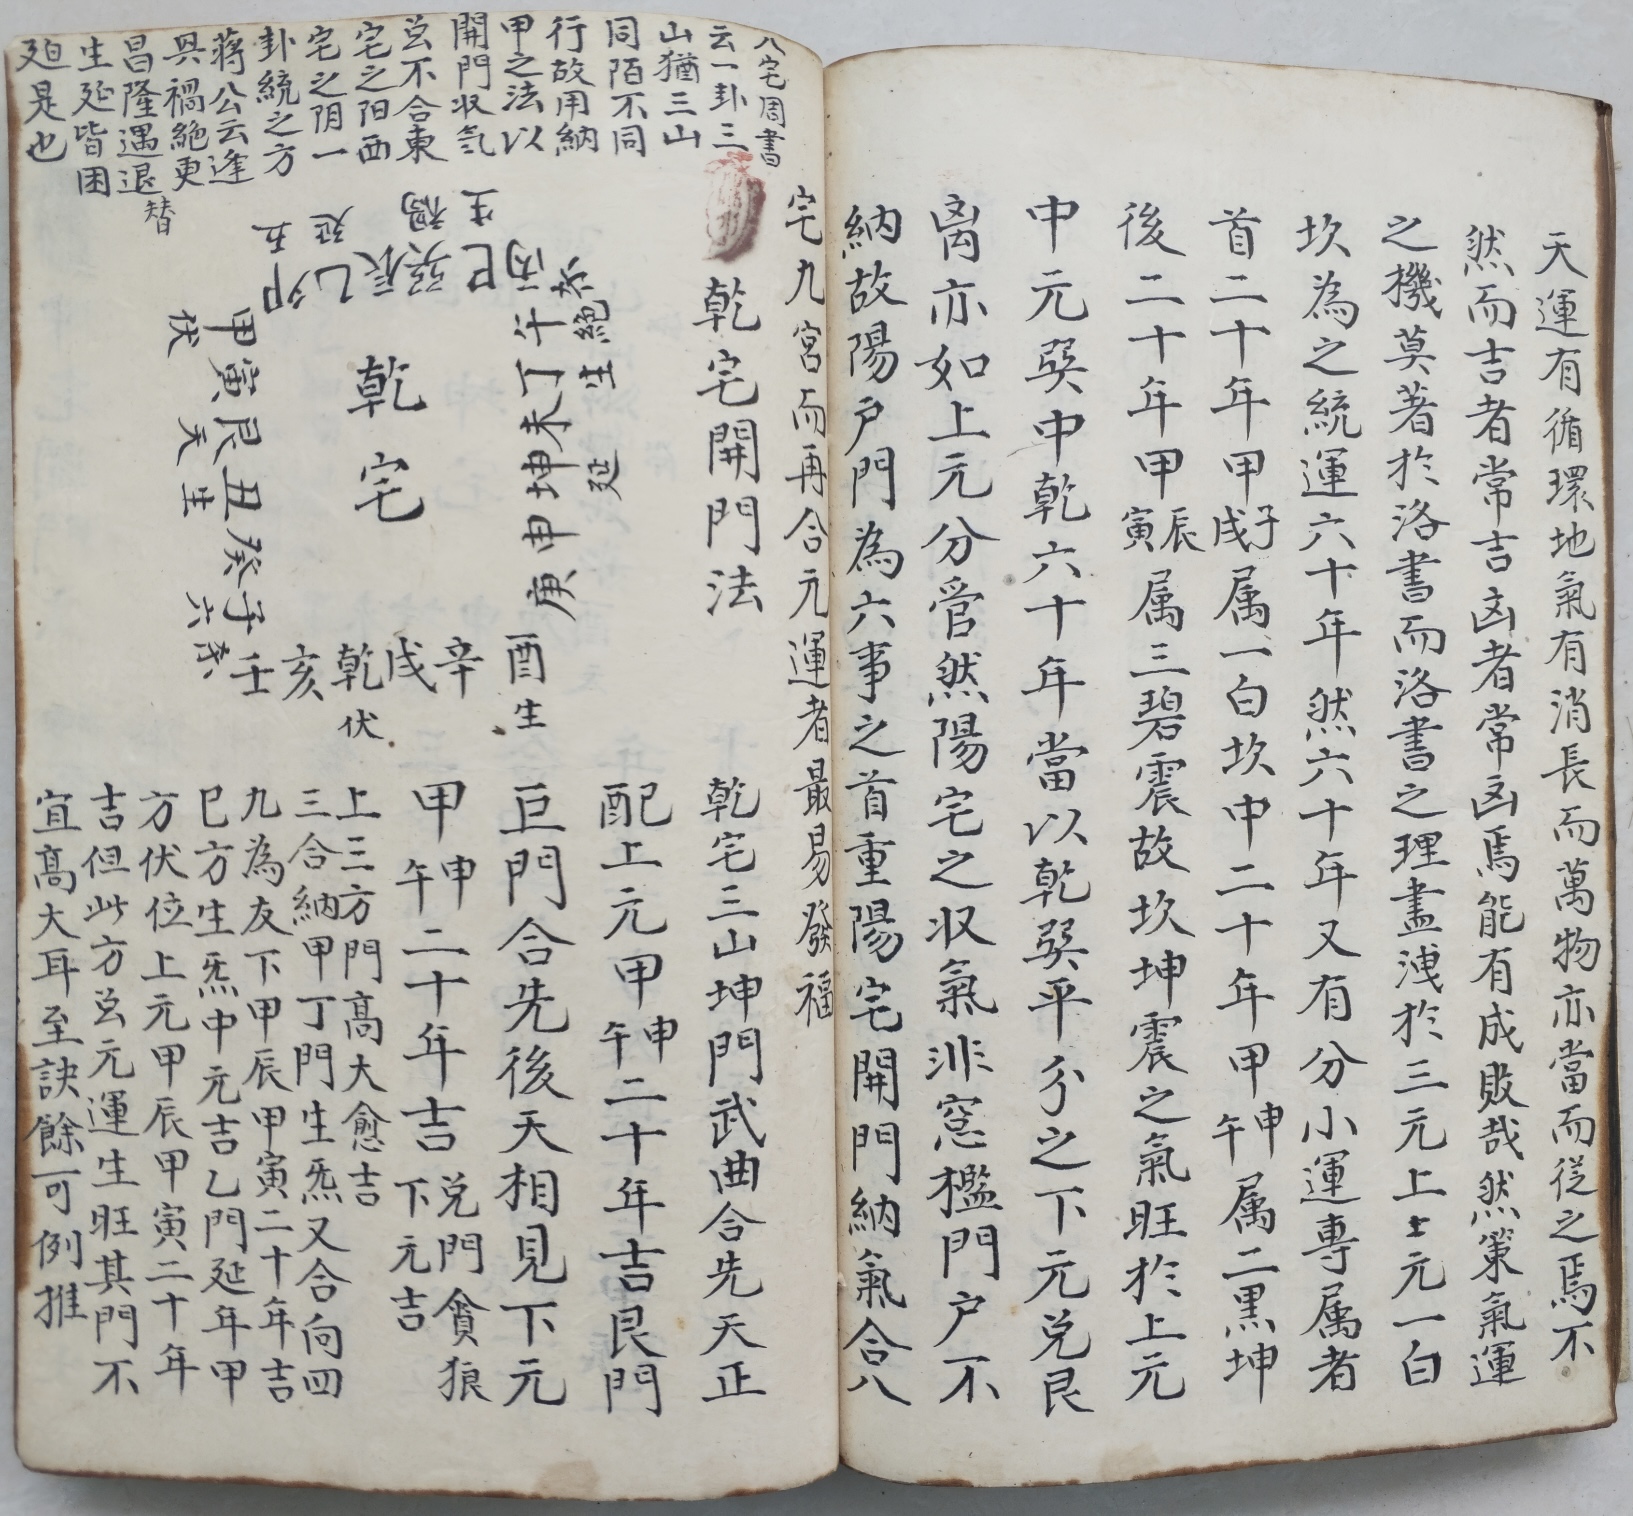 天運有循環地氣有消長而萬物亦當而従之焉不
然而吉者常吉凶者常凶焉能有成敗哉然箓氣運
之機莫著於洛書而洛書之理盡洩於三元上士元一白
坎為之統運六十年然六十年又有分小運專属者
首二十年甲子戌属一白坎中二十年甲申午属二黑坤
後二十年甲辰寅属三碧震故坎坤震之氣旺於上元
中元巽中乾六十年當以乾巽平分之下元兑艮
离亦如上元分管然陽宅之収氣非窓檻門户不
納故陽户門為六事之首重陽宅開門納氣合八
宅九宮而再合元運者最易發福
八宅周書
云一卦三
山猶三山
同陌不同
行故用納
甲之法以
開門収氣
兑不合東
宅之阳西
宅之阴一
卦統之方
蔣公云逢
興禍絶更
昌隆遇退替
生延皆困
廻是也
乾宅開門法
乾宅
丙午丁未坤申庚
絶生延
酉生
辛戌乾亥壬
伏
甲寅艮丑癸子
伏天生六
巳巽辰乙夘
生禍延五
乾宅三山坤門武曲合先天正
配上元甲申午二十年吉艮門
巨門合先後天相見下元
甲申午二十年吉兑門貪狼下元吉
上三方門高大愈吉
三合納甲丁門生炁又合向四
九為友下甲辰甲寅二十年吉
巳方生炁中元吉乙門延年甲
方伏位上元甲辰甲寅二十年
吉但此方兑元運生旺其門不
宜高大耳至訣餘可例推